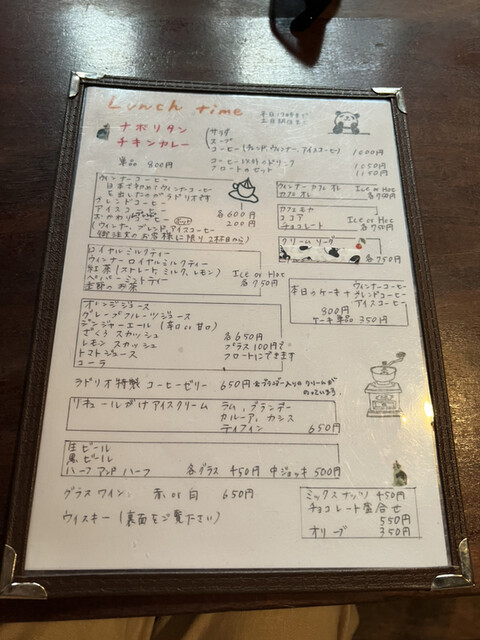 Lunch time
ナポリタン
チキンカレー
サラダ
スープ
コーヒー(ブレンド、ウィンナー、アイスコーヒー) 1000円
コーヒー以外のドリンク 1050円
フロートのセット 1150円
単品 800円
ウィンナーコーヒー
日本で初めてウィンナーコーヒー
を出したのがラドリオです
ブレンドコーヒー
アイスコーヒー 各600円
おかわりコーヒー 200円
(ウィンナー、ブレンド、アイスコーヒー
御注文のお客様に限り 2杯目から)
ウィンナーカフェオレ Ice or Hot
カフェオレ 各700円
カフェモカ
ココア Ice or Hot
チョコレート 各700円
クリームソーダ
各750円
ロイヤルミルクティー
ウィンナーロイヤルミルクティー
紅茶(ストレート、ミルク、レモン) Ice or Hot
ペパーミントティー 各750円
季節のお茶
本日のケーキ+ ウィンナーコーヒー
ブレンドコーヒー
アイスコーヒー
800円
ケーキ単品 350円
オレンジジュース
グレープフルーツジュース
ジンジャーエール(辛口 or 甘口) 各650円
ざくろ スカッシュ プラス100円で
レモン スカッシュ フロートにできます
トマトジュース
コーラ
ラドリオ特製 コーヒーゼリー 650円 生ブランデー入りのクリームが
リキュールがけアイスクリーム ラム、ブランデー
カルーア、カシス
ティフィン 650円
生ビール
黒ビール
ハーフ アンド ハーフ 各グラス 450円 中ジョッキ 500円
グラスワイン 赤 or 白 650円
ウィスキー(裏面をご覧ください)
ミックスナッツ 450円
チョコレート盛合せ
550円
オリーブ 350円